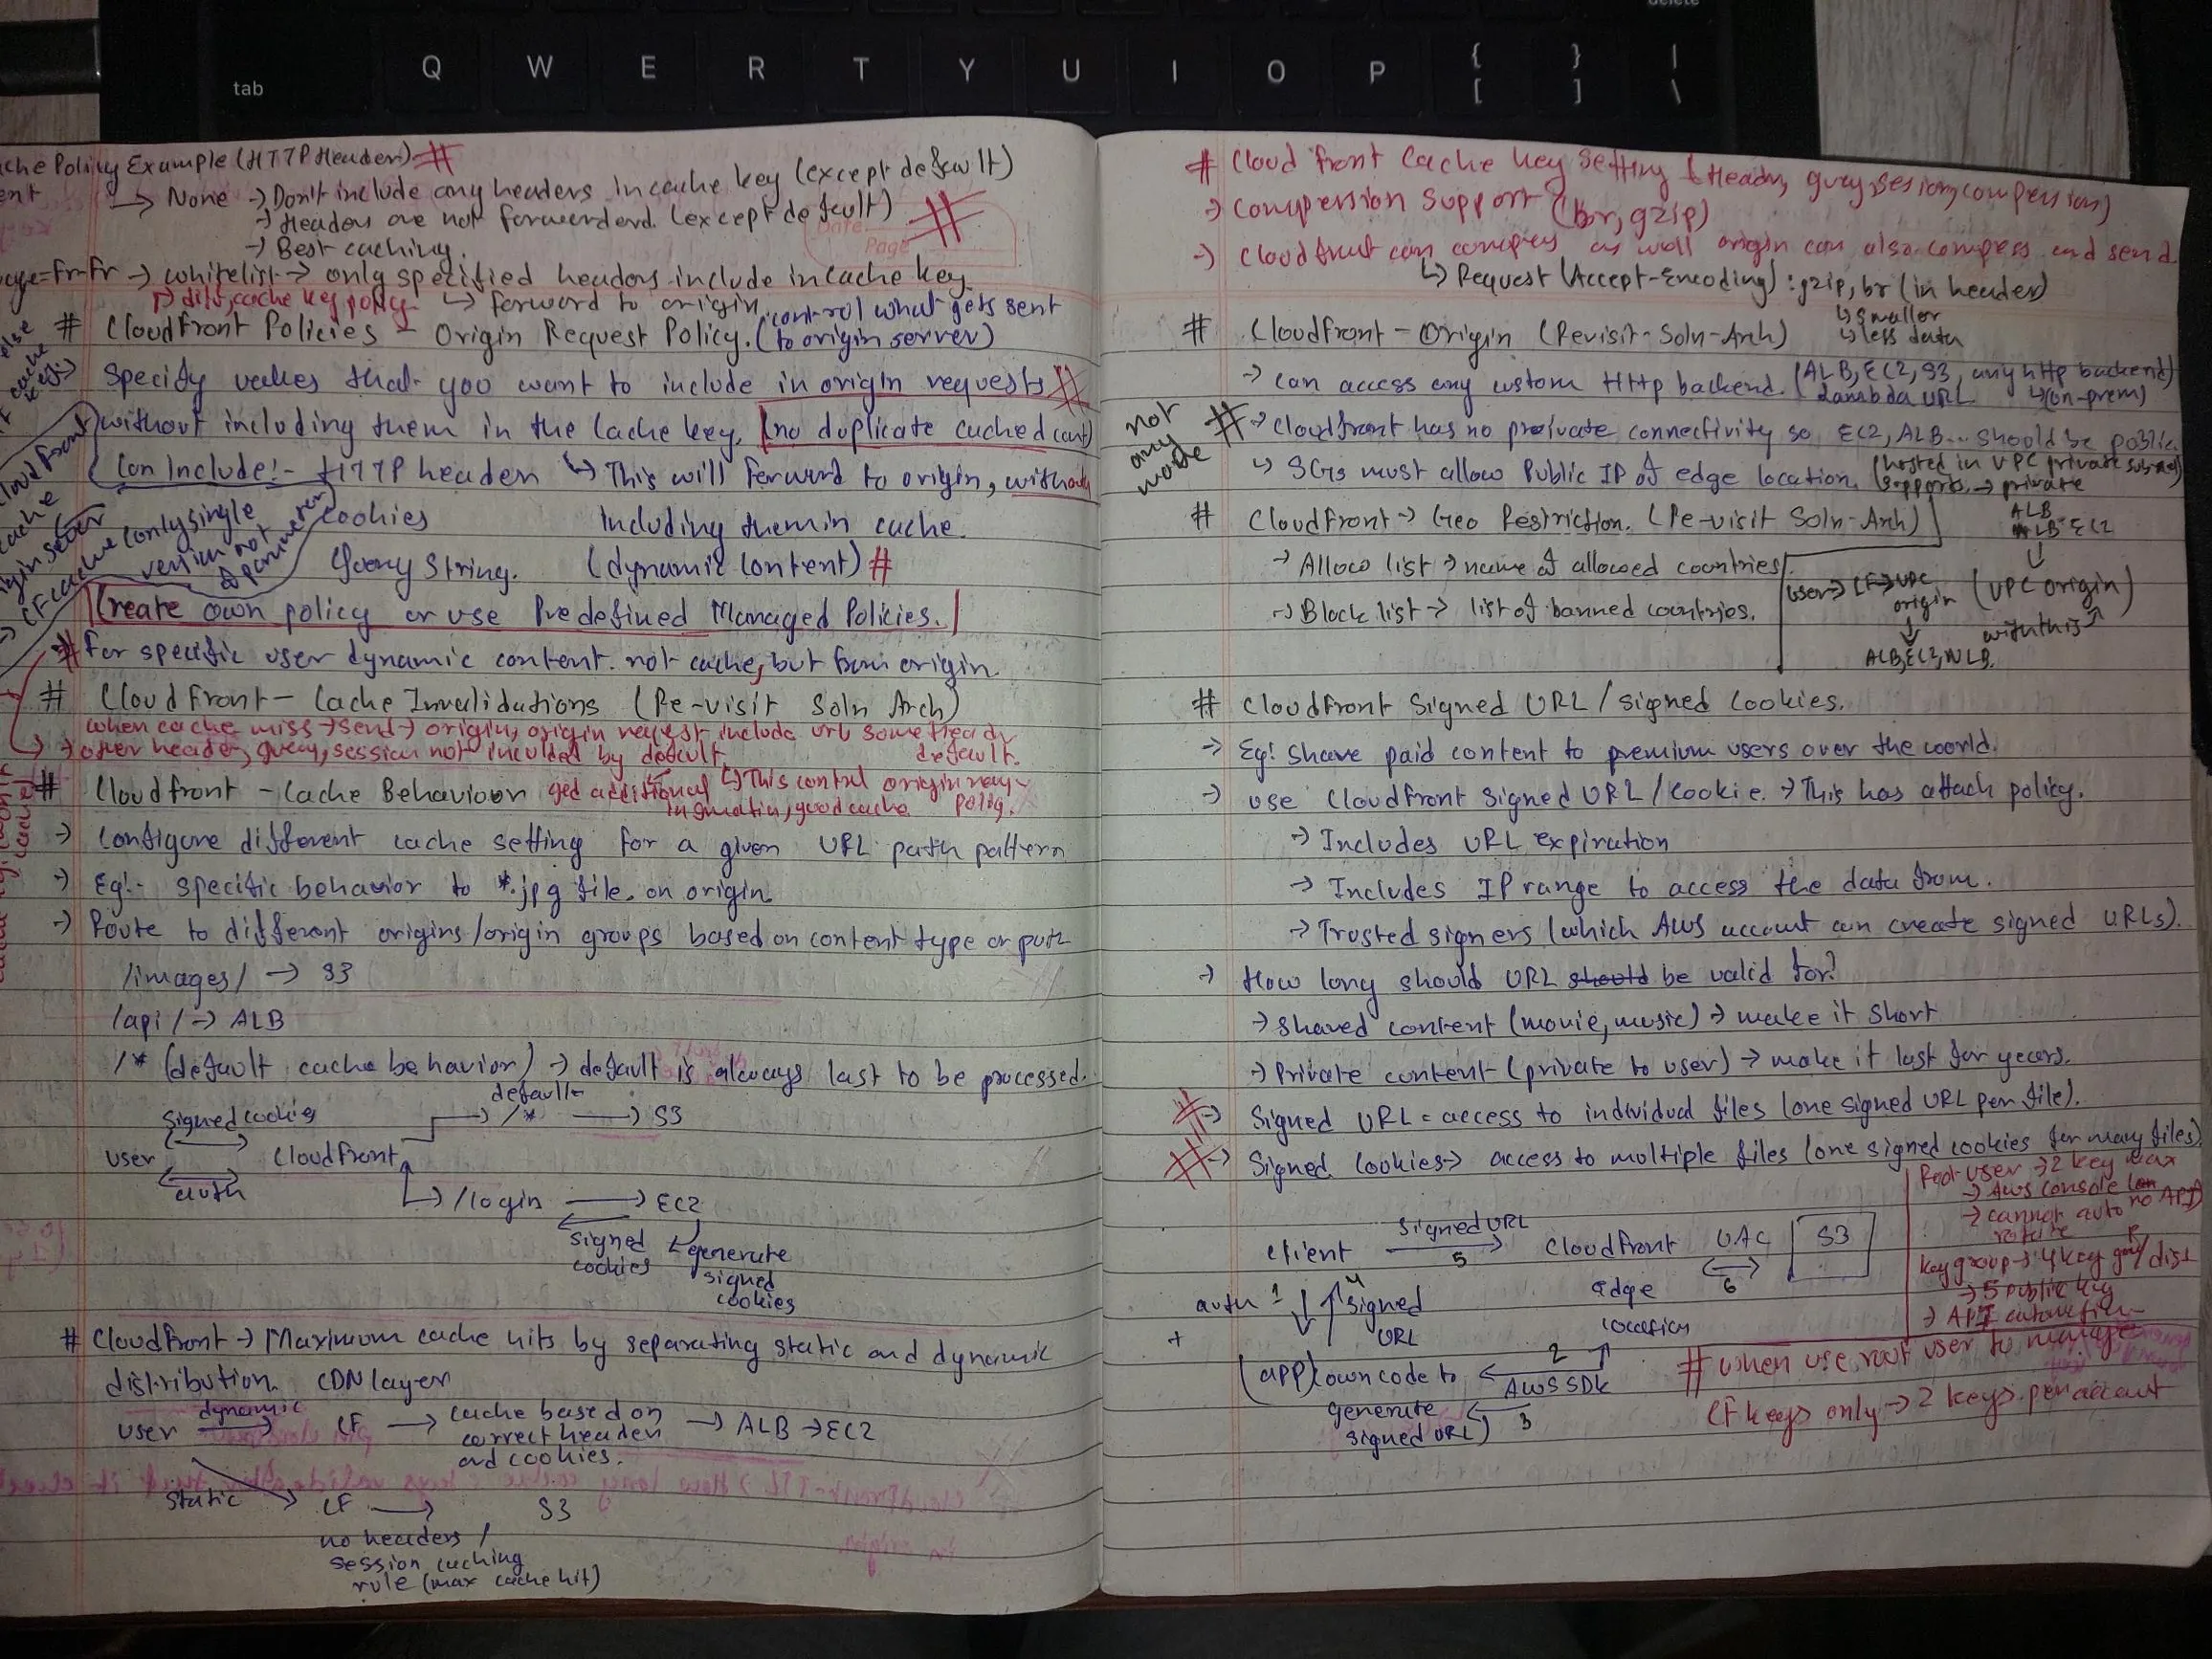 delete
tab Q W E R T Y U I O P { [ } ] | \
che Policy Example (HTTP Header) #
ent → None → Don't include any headers in cache key (except default)
→ Headers are not forwarderd. (except default) #
Date
Page
→ Best caching.
age=Fr-Fr → whitelist → only specified headers include in cache key
cache key policy ↳ forward to origin, control what gets sent
# CloudFront Policies - Origin Request Policy. (to origin server)
Specify values that you want to include in origin requests #
without including them in the cache key. (no duplicate cached cont)
Can Include:- HTTP header ↳ This will forward to origin, without
cookies Including them in cache.
Query String. (dynamic content) #
cache only single
version not
Create own policy or use Predefined Managed Policies.
# for specific user dynamic content. not cache, but from origin.
# CloudFront - Cache Invalidations (Re-visit Soln Arch)
when cache miss → send → origin, origin request include url some
→ other header, query, session not inculded by default. default.
# Cloudfront - Cache Behaviour ged additional ↳ This control origin
good cache
→ Configure different cache setting for a given URL path pattern
→ Eg:- specific behavior to *.jpg file. on origin.
→ Route to different origins/origin groups based on content type or path
/images/ → S3
/api/ → ALB
/* (default cache behavior) → default is always last to be processed.
default
Signed cookies → /* → S3
user CloudFront
auth
→ /login → EC2
signed cookies
generate signed cookies
# CloudFront → Maximum cache hits by separating static and dynamic
distribution. CDN layer
user dynamic → CF → cache based on correct header and cookies. → ALB → EC2
static → CF → S3
no headers /
session caching
rule (max cache hit)
# Cloud front Cache key setting (Header, query, session, compression)
→ compression support (br, gzip)
→ Cloudfrunt can compres as well origin can also compress and send
↳ Request (Accept-Encoding) : gzip, br (in header)
↳ smaller
↳ less data
# CloudFront - Origin (Revisit-Soln-Arch)
→ can access any custom HTTP backend. (ALB, EC2, S3, any http backend)
Lambda URL ↳ (on-prem)
not any more
# → Cloudfront has no preivate connectivity so EC2, ALB... should be public.
↳ SGs must allow Public IP of edge location. (hosted in VPC private subnet)
supports → private
ALB
EC2
# CloudFront → Geo Restriction. (Re-visit Soln-Arch)
→ Allow list → name of allowed countries
→ Block list → list of banned countries.
user → CF → VPC origin (VPC origin)
with this
ALB, EC2, NLB.
# CloudFront Signed URL / signed Cookies.
→ Eg: share paid content to premium users over the world.
→ use CloudFront Signed URL / Cookie. → This has attach policy.
→ Includes URL expiration
→ Includes IP range to access the data from.
→ Trusted signers (which AWS account can create signed URLs).
→ How long should URL should be valid for?
→ shared content (movie, music) → make it short
→ Private content (private to user) → make it last for years.
# → Signed URL = access to individual files (one signed URL per file).
# → Signed Cookies → access to multiple files (one signed cookies for many files)
Root user → 2 key max
→ AWS console
no API)
→ cannot auto rotate
key group → 4 key / dist
→ 5 public key
→ API automation
client signed URL 5 → CloudFront OAC 6 S3
edge location
auth 1 4 signed URL
+
(app) (own code to generate signed URL)
2
AWS SDK
3
# when use root user to manage
CF keys only → 2 keys per account